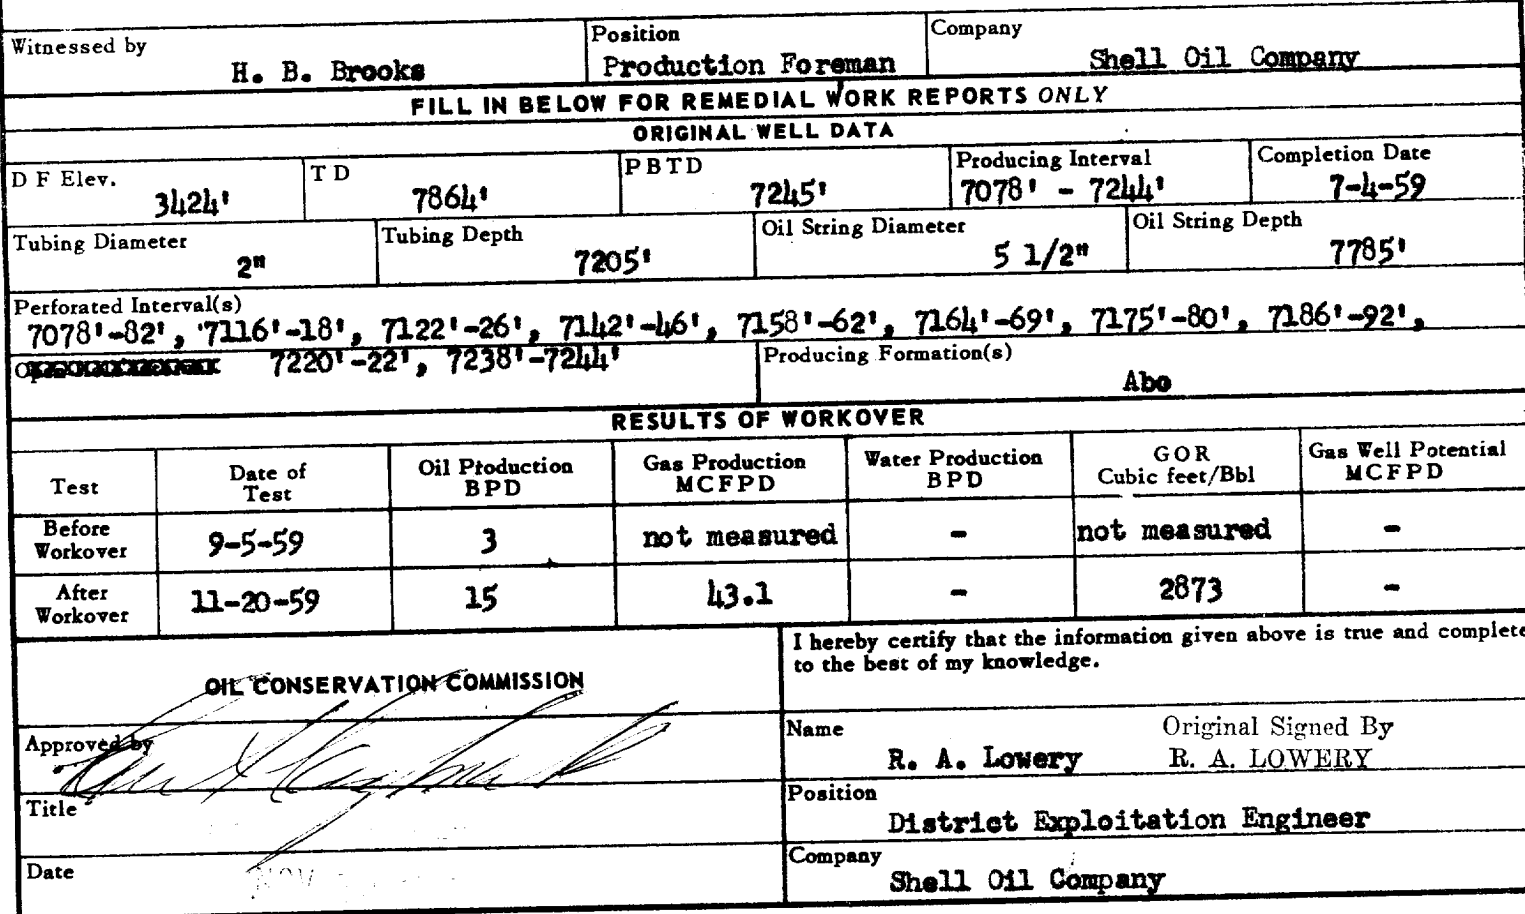 Witnessed by H. B. Brooks Position Production Foreman Company Shell Oil Company
FILL IN BELOW FOR REMEDIAL WORK REPORTS ONLY
ORIGINAL WELL DATA
D F Elev. 3424' T D 7864' PBTD 7245' Producing Interval 7078' - 7244' Completion Date 7-4-59
Tubing Diameter 2" Tubing Depth 7205' Oil String Diameter 5 1/2" Oil String Depth 7785'
Perforated Interval(s)
7078'-82', 7116'-18', 7122'-26', 7142'-46', 7158'-62', 7164'-69', 7175'-80', 7186'-92',
7220'-22', 7238'-7244' Producing Formation(s)
Abo
RESULTS OF WORKOVER
Test Date of Test Oil Production BPD Gas Production MCFPD Water Production BPD GOR Cubic feet/Bbl Gas Well Potential MCFPD
Before Workover 9-5-59 3 not measured - not measured -
After Workover 11-20-59 15 43.1 - 2873 -
OIL CONSERVATION COMMISSION
I hereby certify that the information given above is true and complete
to the best of my knowledge.
Approved by
Name R. A. Lowery Original Signed By
R. A. LOWERY
Title
Position District Exploitation Engineer
Date NOV
Company Shell Oil Company